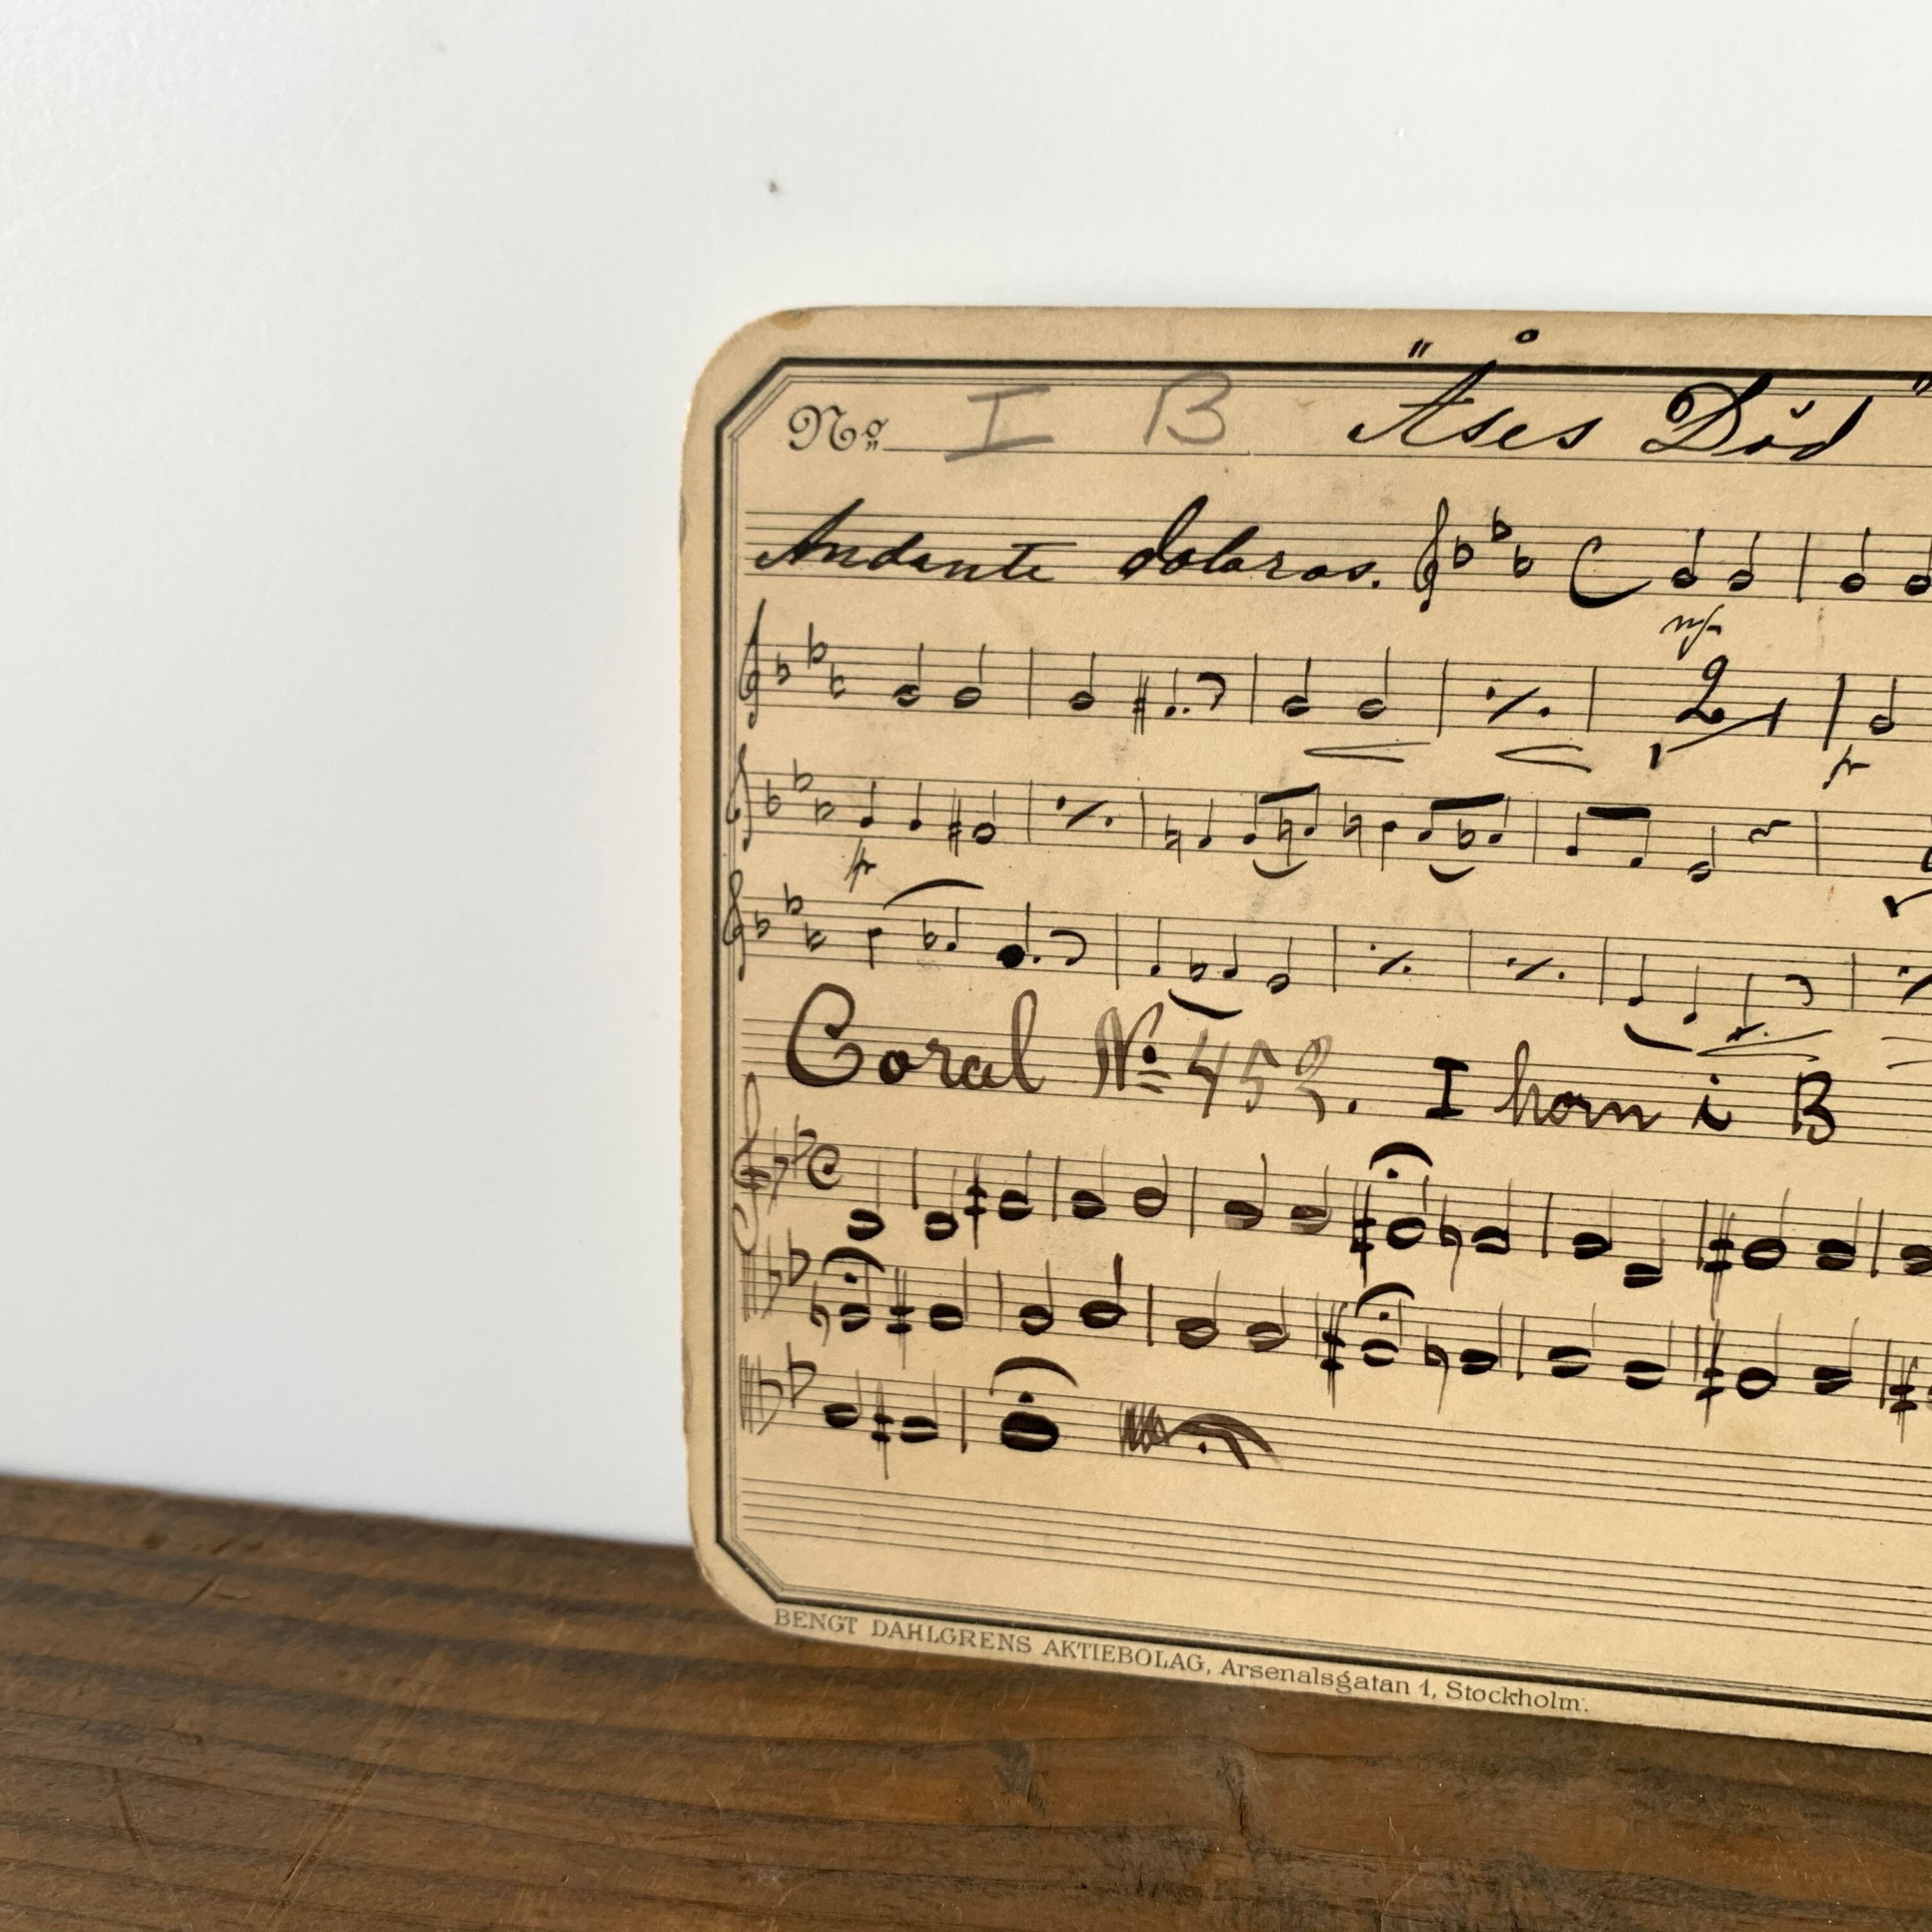 Nº I B "Åses Död"
Andante doloros.
mf
2
p
p
Coral Nº 452. I horn i B
BENGT DAHLGRENS AKTIEBOLAG, Arsenalsgatan 1, Stockholm.